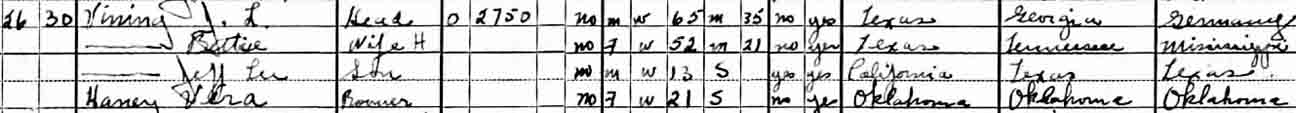 26 30 Vining J. L. Head O 2750 no m w 65 m 35 no yes Texas Georgia Germany
—— Bettie Wife H no F w 52 m 21 no yes Texas Tennessee Mississippi
—— Jeff Lee Son no m w 13 S yes yes California Texas Texas
Haney Vera Roomer no F w 21 S no yes Oklahoma Oklahoma Oklahoma